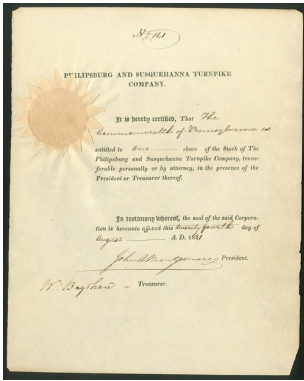 No 161
PHILIPSBURG AND SUSQUEHANNA TURNPIKE
COMPANY.
It is hereby certified, That The
Commonwealth of Pennsylvania is
entitled to one share of the Stock of The
Philipsburg and Susquehanna Turnpike Company, trans-
ferable personally or by attorney, in the presence of the
President or Treasurer thereof.
In testimony whereof, the seal of the said Corpora-
tion is hereunto affixed this twenty fourth day of
August A. D. 1821
John Montgomery President.
W. Bagshaw Treasurer.